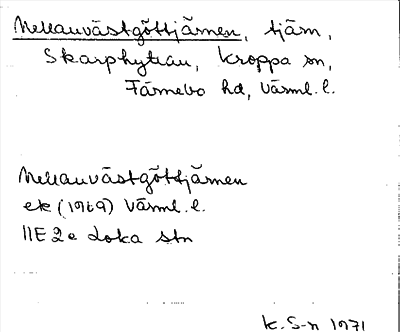 Mellanvästgöttjärnen, tjärn,
Skarphyttan, Kroppa sn,
Färnebo hd, Värml. l.
Mellanvästgöttjärnen
ek (1969) Värml. l.
11E 2e Loka stn
K. S-n 1971